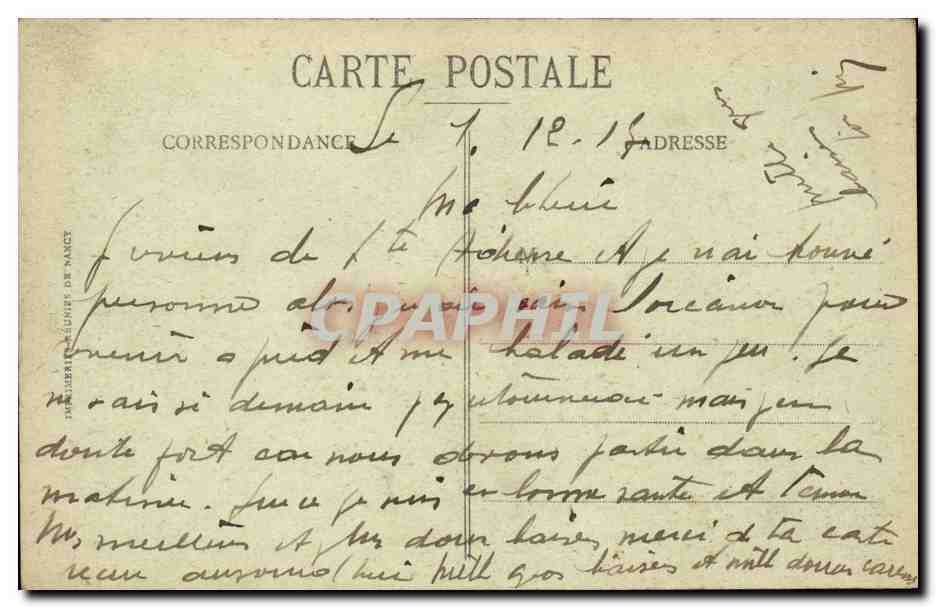 CARTE POSTALE
CORRESPONDANCE
ADRESSE
Le 1. 12. 15
Ma chérie
Je viens de Ste Adresse et je n'ai trouvé
personne alors j'ai l'occasion pour
venir a pied et me balade un peu. Je
ne sais si demain j'y retournerai mais j'en
doute fort car nous devons partir dans la
matinée. Quand a je suis en bonne santé et t'envoi
Mes meilleurs et plus doux baisers merci de ta carte
recu aujourd'hui Mille gros baisers et mille douces caresses
mille
gros
baisers
IMPRIMERIES REUNIES DE NANCY
CPAPHIL